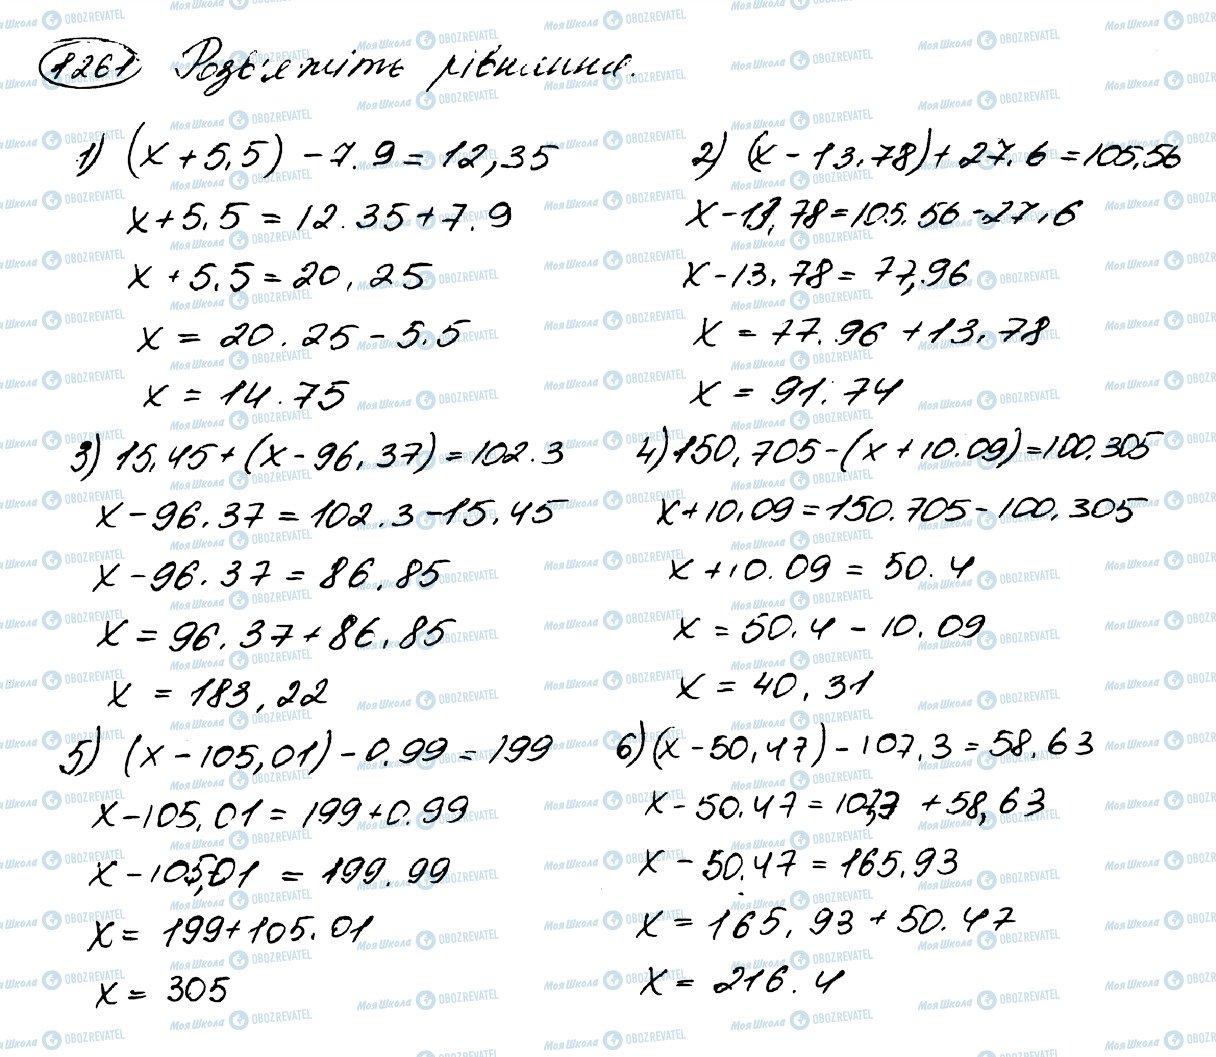 1261 Розв'яжіть рівняння.
1) (x + 5,5) - 7.9 = 12,35
x + 5,5 = 12.35 + 7.9
x + 5,5 = 20,25
x = 20.25 - 5,5
x = 14.75
2) (x - 13,78) + 27,6 = 105,56
x - 13,78 = 105.56 - 27,6
x - 13,78 = 77,96
x = 77.96 + 13,78
x = 91.74
3) 15,45 + (x - 96,37) = 102.3
x - 96.37 = 102.3 - 15.45
x - 96.37 = 86.85
x = 96.37 + 86.85
x = 183,22
4) 150,705 - (x + 10.09) = 100.305
x + 10,09 = 150.705 - 100,305
x + 10.09 = 50.4
x = 50.4 - 10.09
x = 40,31
5) (x - 105,01) - 0.99 = 199
x - 105,01 = 199 + 0.99
x - 105,01 = 199.99
x = 199 + 105.01
x = 305
6) (x - 50,47) - 107,3 = 58.63
x - 50.47 = 107,3 + 58,63
x - 50.47 = 165.93
x = 165,93 + 50.47
x = 216.4
Моя Школа OBOZREVATEL